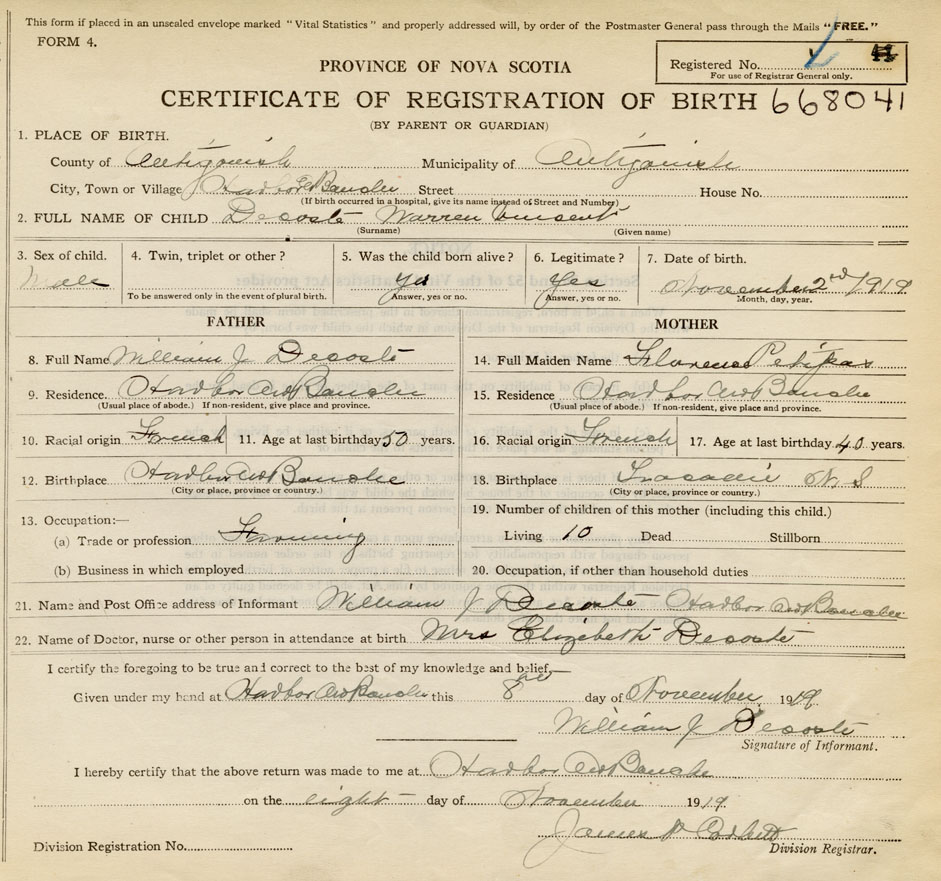 This form if placed in an unsealed envelope marked "Vital Statistics" and properly addressed will, by order of the Postmaster General pass through the Mails "FREE."
FORM 4.
Registered No.
For use of Registrar General only.
PROVINCE OF NOVA SCOTIA
CERTIFICATE OF REGISTRATION OF BIRTH 668041
(BY PARENT OR GUARDIAN)
1. PLACE OF BIRTH.
County of Antigonish Municipality of Antigonish
City, Town or Village Harbor Bouche Street House No.
(If birth occurred in a hospital, give its name instead of Street and Number)
2. FULL NAME OF CHILD Decoste Warren Vincent
(Surname) (Given name)
3. Sex of child. 4. Twin, triplet or other? 5. Was the child born alive? 6. Legitimate? 7. Date of birth.
Male Yes Yes November 2nd 1919
To be answered only in the event of plural birth. Answer, yes or no. Answer, yes or no. Month, day, year.
FATHER MOTHER
8. Full Name William J Decoste 14. Full Maiden Name Florence Petipas
9. Residence Harbor Au Bouche 15. Residence Harbor Au Bouche
(Usual place of abode.) If non-resident, give place and province. (Usual place of abode.) If non-resident, give place and province.
10. Racial origin French 11. Age at last birthday 50 years. 16. Racial origin French 17. Age at last birthday 40 years.
12. Birthplace Harbor Au Bouche 18. Birthplace Tracadie N. S
(City or place, province or country.) (City or place, province or country.)
13. Occupation:— 19. Number of children of this mother (including this child.)
(a) Trade or profession Farming Living 10 Dead Stillborn
(b) Business in which employed 20. Occupation, if other than household duties
21. Name and Post Office address of Informant William J Decoste Harbor Au Bouche
22. Name of Doctor, nurse or other person in attendance at birth Mrs Elizabeth Decoste
I certify the foregoing to be true and correct to the best of my knowledge and belief,—
Given under my hand at Harbor Au Bouche this 8 day of November 1919
William J Decoste
Signature of Informant.
I hereby certify that the above return was made to me at Harbor Au Bouche
on the eight day of November 1919.
James Corbett
Division Registration No. Division Registrar.